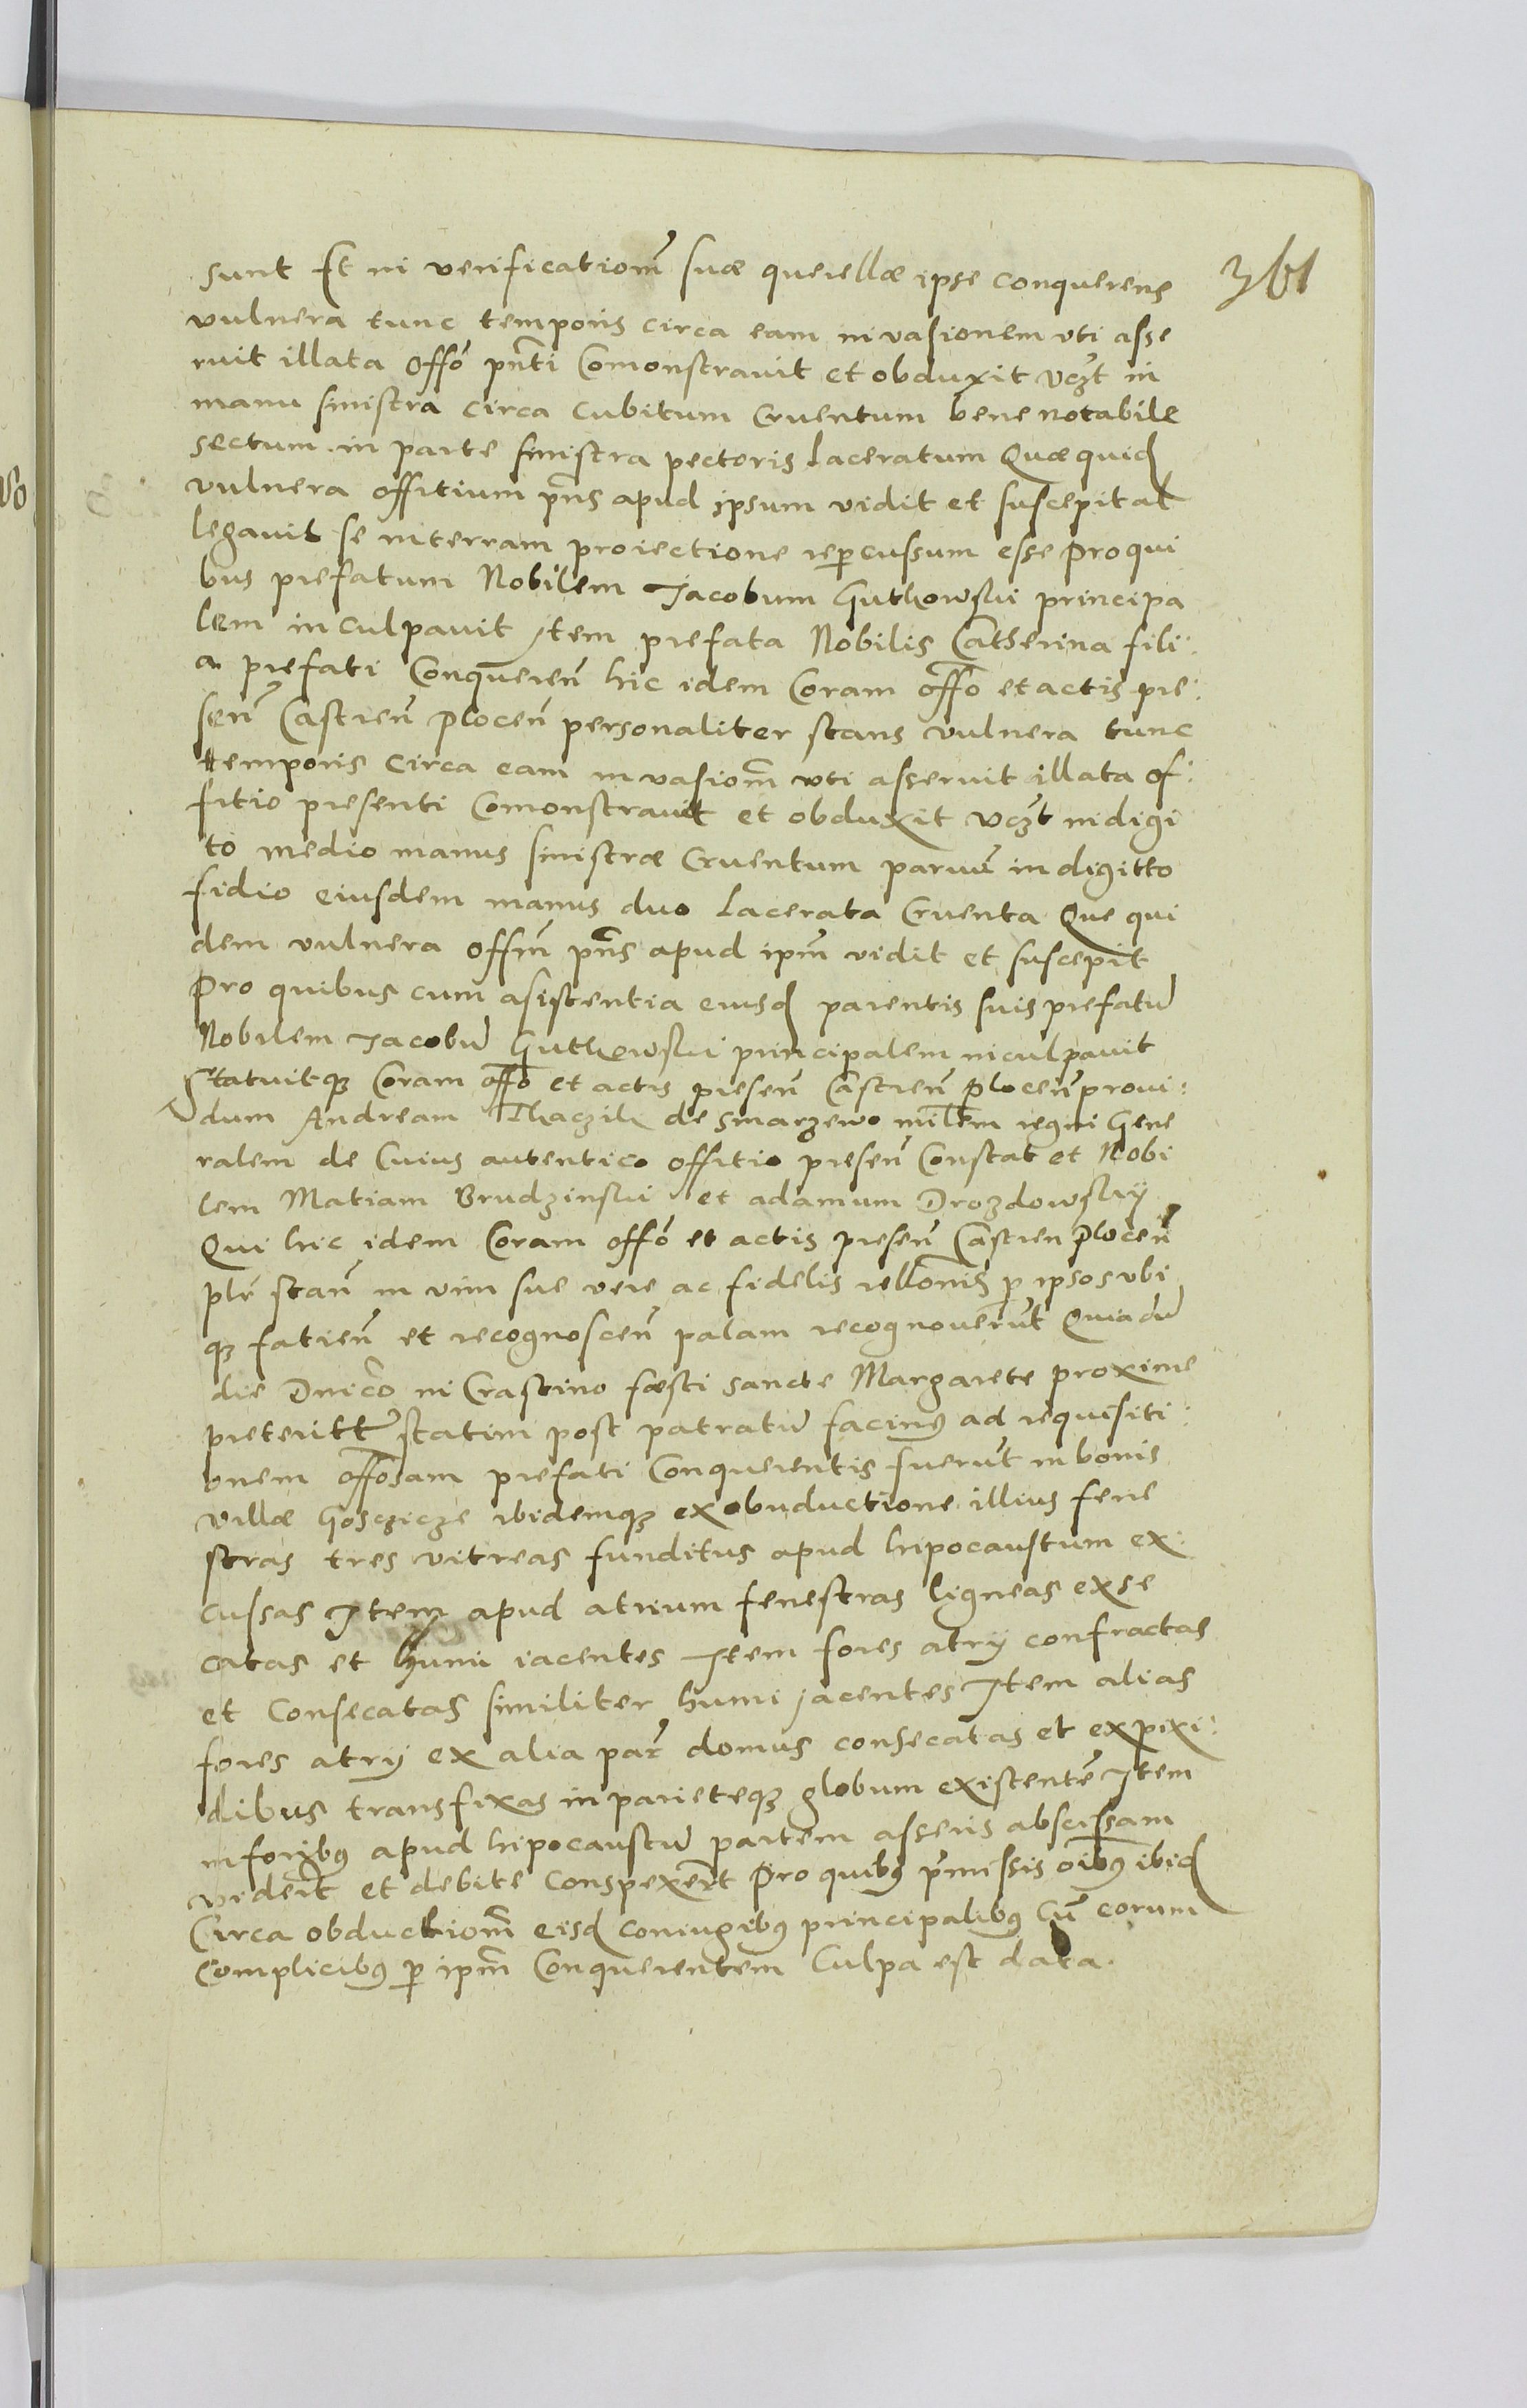 361
sunt Et in verificationẽ suæ querellæ ipse conquerens
vulnera tunc temporis circa eam invasionem uti asse
ruit illata offõ pñti Comonstravit et obduxit vczt in
manu sinistra circa Cubitum Cruentum bene notabile
sectum in parte sinistra pectoris laceratum Quæ quid
vulnera offitium pñs apud ipsum vidit et suscepit al
legavit se in terram proiectione repcussum esse Pro qui
bus prefatum Nobilem Jacobum Guthowski principa
lem inculpavit Jtem prefata Nobilis Catherina fili:
a prefati Conqueren̄ hic idem Coram offo et actis pre:
sen̄ Castren̄ Plocen̄ personaliter stans vulnera tunc
temporis circa eam invasionẽ uti asseruit illata of:
fitio presenti Comonstravit et obduxit vczt in digi
to medio manus sinistræ Cruentum parvũ in digitto
fidio eiusdem manus duo lacerata Cruenta Que qui
dem vulnera offm̃ pñs apud ipm̃ vidit et suscepit
Pro quibus cum asistentia eiusd parentis suis prefatũ
Nobilem Jacobũ Guthowski principalem inculpavit
Statuitqꝫ Coram offo et actis presen̄ Castren̄ Plocen̄ provi:
dum Andream Thaczik de Smarzewo militem regni Gene
ralem de Cuius autentico offitio presen̄ Constat et Nobi
lem Matiam Brudzinski et adamum Drozdowsky
Qui hic idem Coram offõ et actis presen̄ Castren Plocen̄
plr̃ stan̄ in vim sue vere ac fidelis rellõnis p ipsos ubi
qꝫ fatien̄ et recognoscen̄ palam recognoverũt Quia dũ
die Dnico in Crastino fæsti sanctæ Margarete proxime
preteritt statim post patratũ facinꝰ ad requisiti:
onem offosam prefati Conquerentis fuerũt in bonis
villæ Gosczicze ibidemqꝫ ex obnductione illius fene
stras tres vitreas funditus apud hipocaustum ex:
cussas Jtem apud atrium fenestras ligneas exse
catas et humi iacentes Jtem fores atrij confractas
et Consecatas similiter humi jacentes Jtem alias
fores atrij ex alia par̃ domus consecatas et ex pixi:
dibus transfixas in parieteqꝫ globum existentẽ Jtem
in foribꝰ apud hipocaustũ partem asseris abscissam
viderũt et debite Conspexerũt Pro quibꝰ pr̃missis oibꝰ ibid
Circa obductionẽ eisd coniugibꝰ principalibꝰ Cũ eorum
Complicibꝰ p ipm̃ Conquerentem Culpa est data.